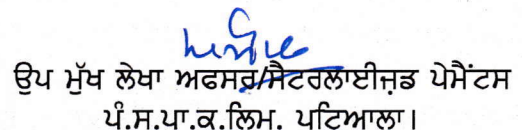 ਉਪ ਮੁੱਖ ਲੇਖਾ ਅਫਸਰ/ਸੈਟਰਲਾਈਜ਼ਡ ਪੇਮੈਂਟਸ
ਪੰ.ਸ.ਪਾ.ਕ.ਲਿਮ. ਪਟਿਆਲਾ।